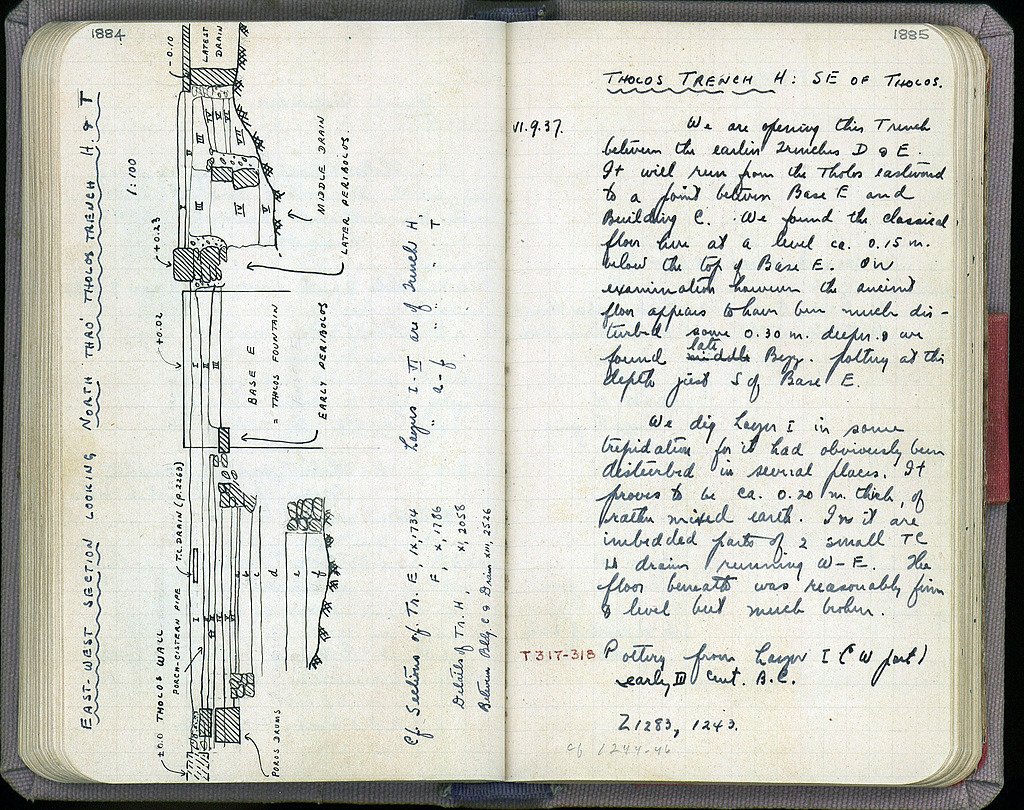 1884
EAST-WEST SECTION LOOKING NORTH THRO' THOLOS TRENCH H & T
1:100
±0.0 THOLOS WALL
PORCH-CISTERN PIPE
T.C. DRAIN (p. 2263)
+0.02
+0.23
-0.10
LATEST
DRAIN
I
II
III
IV
V
VI
VII
I
II
III
I
d
e
f
BASE E
= THOLOS FOUNTAIN
EARLY PERIBOLOS
MIDDLE DRAIN
LATER PERIBOLOS.
POROS DRUMS
Layers I-VI are of Trench H,
" a-f " " " T
Cf. Sections of Tr. E, IX, 1734
F, X, 1786
Details of Tr. H, XI, 2058
Between Bldg. C & Drain XIII, 2526
1885
THOLOS TRENCH H: SE OF THOLOS.
VI.9.37.
We are opening this Trench
between the earlier Trenches D & E.
It will run from the Tholos eastward
to a point between Base E and
Building C. We found the classical
floor here at a level ca. 0.15 m.
below the top of Base E. On
examination however the ancient
floor appears to have been much dis-
turbed some 0.30 m. deeper & we
found middle late Byz. pottery at this
depth just S of Base E.
We dig Layer I in some
trepidation for it had obviously been
disturbed in several places. It
proves to be ca. 0.20 m. thick, of
rather mixed earth. In it are
imbedded parts of 2 small TC
U drains running W-E. The
floor beneath was reasonably firm
& level but much broken.
T 317-318 Pottery from Layer I (W part)
early III cent. B.C.
Z1283, 1243.
cf 1244-46